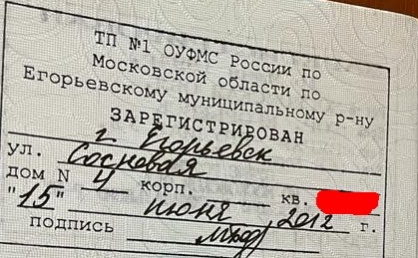 ТП №1 ОУФМС России по
Московской области по
Егорьевскому муниципальному р-ну
ЗАРЕГИСТРИРОВАН
г. Егорьевск
ул. Сосновая
дом N 4 корп. кв.
"15" июня 2012 г.
подпись